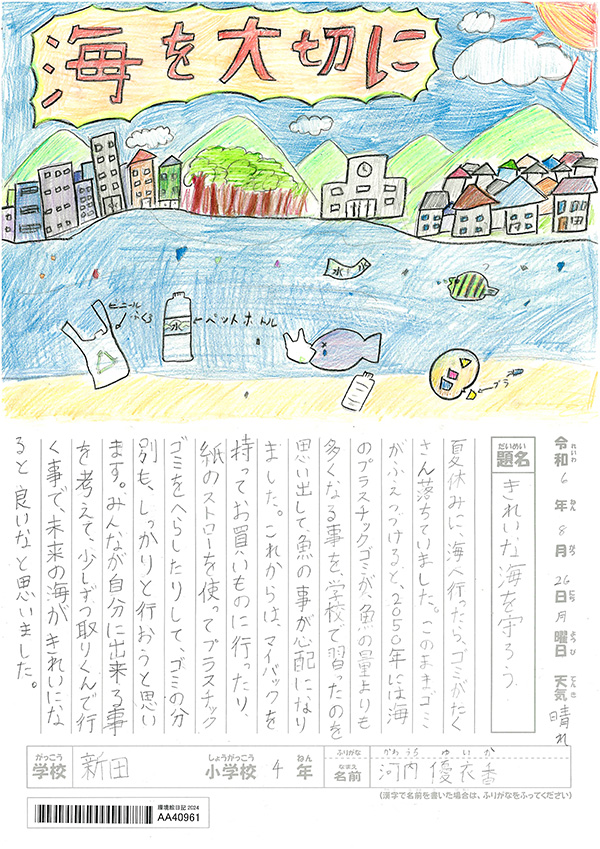 海を大切に
水
ビニール
ふくろ
水
ペットボトル
プラ
令和6年8月26日月曜日 天気 晴れ
れいわ ねん がつ にち ようび てんき
だいめい
題名
きれいな海を守ろう
夏休みに、海へ行ったら、ゴミがたく
さん落ちていました。このままゴミ
がふえつづけると、2050年には海
のプラスチックゴミが、魚の量よりも
多くなる事を、学校で習ったのを
思い出して、魚の事が心配になり
ました。これからは、マイバックを
持ってお買いものに行ったり、
紙のストローを使ってプラスチック
ゴミをへらしたりして、ゴミの分
別も、しっかりと行おうと思い
ます。みんなが自分に出来る事
を考えて、少しずつ取りくんで行
く事で、未来の海がきれいにな
ると良いなと思いました。
がっこう
学校
新田
しょうがっこう
小学校
4
ねん
年
ふりがな
かわうち ゆいか
なまえ
名前
河内 優衣香
(漢字で名前を書いた場合は、ふりがなをふってください)
環境絵日記 2024
AA40961